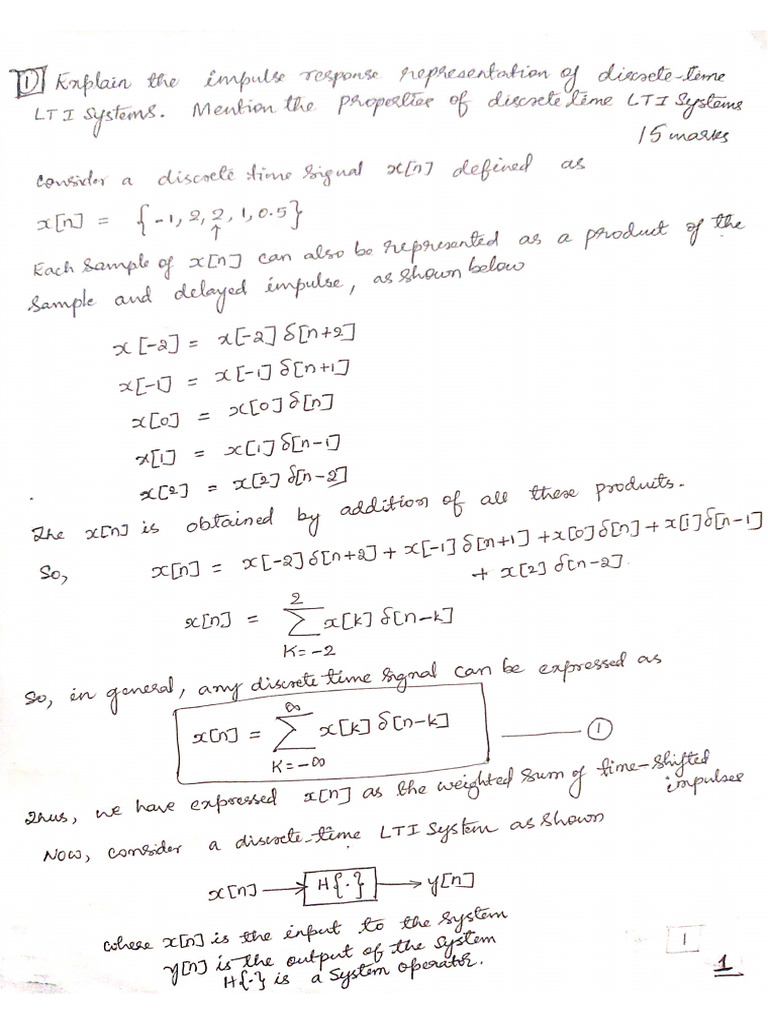 1) Explain the impulse response representation of discrete-time
LTI Systems. Mention the properties of discrete time LTI Systems
15 marks
Consider a discrete time signal x[n] defined as
x[n] = {-1, 2, 2, 1, 0.5}
↑
Each sample of x[n] can also be represented as a product of the
sample and delayed impulse, as shown below
x[-2] = x[-2] δ[n+2]
x[-1] = x[-1] δ[n+1]
x[0] = x[0] δ[n]
x[1] = x[1] δ[n-1]
x[2] = x[2] δ[n-2]
The x[n] is obtained by addition of all these products.
So, x[n] = x[-2] δ[n+2] + x[-1] δ[n+1] + x[0] δ[n] + x[1] δ[n-1]
+ x[2] δ[n-2].
x[n] = 2∑K=-2 x[k] δ[n-k]
So, in general, any discrete time signal can be expressed as
x[n] = ∞∑K=-∞ x[k] δ[n-k] —— 1
Thus, we have expressed x[n] as the weighted sum of time-shifted
impulses
Now, consider a discrete-time LTI System as shown
x[n] → H{·} → y[n]
where x[n] is the input to the system
y[n] is the output of the system
H{·} is a System operator.
1
1